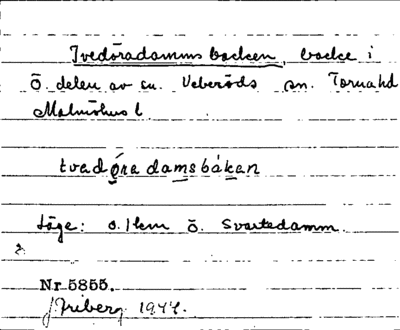 Tvedöradamms backen, backe i
Ö. delen av sn. Veberöds sn. Torna hd
Malmöhus l.
tvadø̨ra damsbákan
Läge: 0.1 km Ö. Svartedamm.
Nr 5855.
J. Friberg 1944.